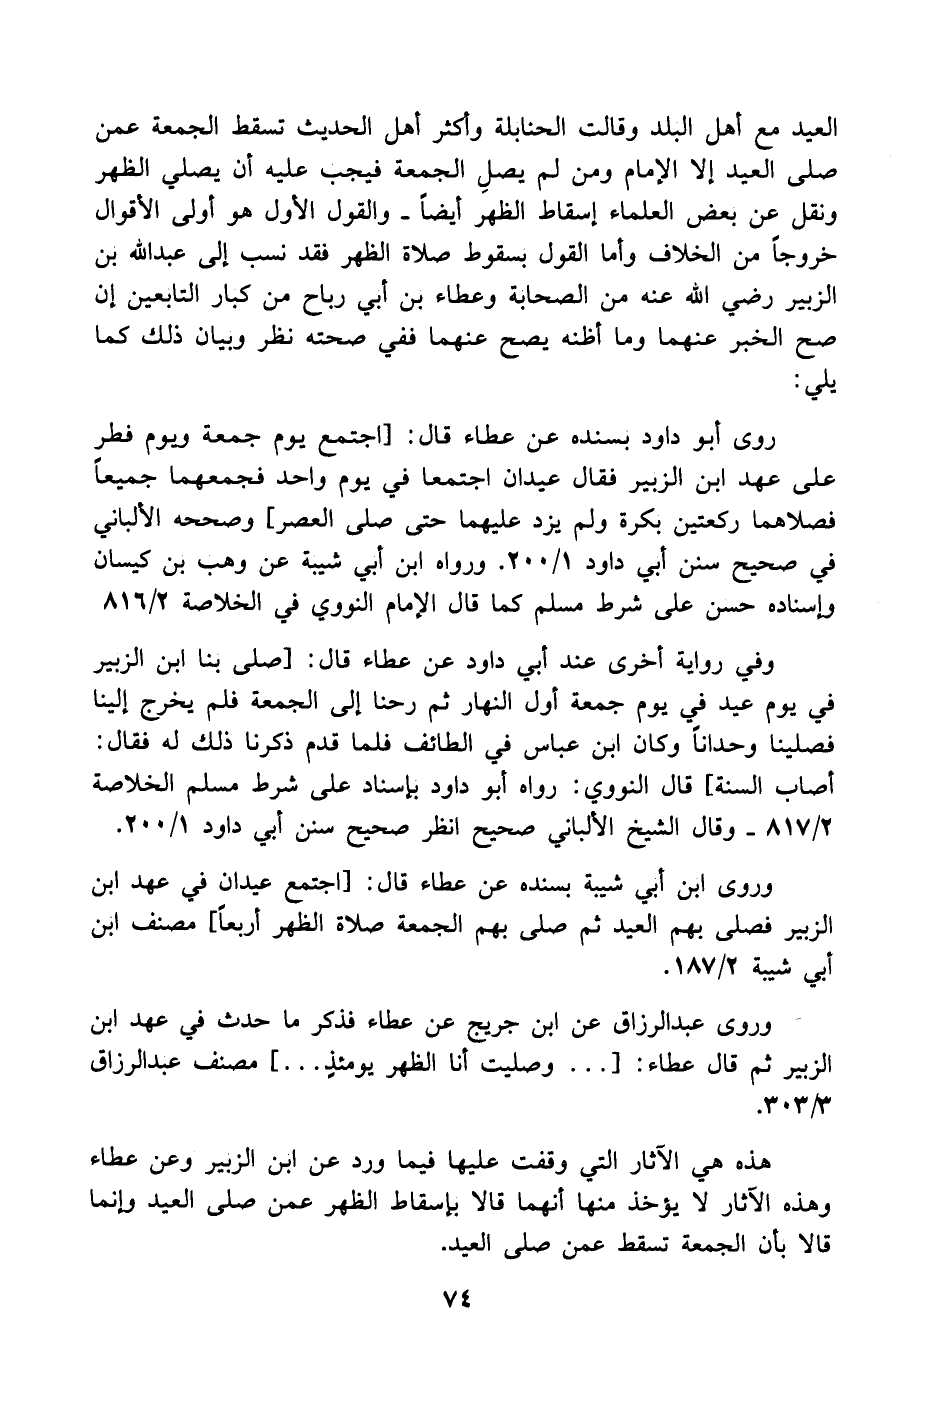 العيد مع أهل البلد وقالت الحنابلة وأكثر أهل الحديث تسقط الجمعة عمن
صلى العيد إلا الإمام ومن لم يصلِ الجمعة فيجب عليه أن يصلي الظهر
ونقل عن بعض العلماء إسقاط الظهر أيضاً ـ والقول الأول هو أولى الأقوال
خروجاً من الخلاف وأما القول بسقوط صلاة الظهر فقد نسب إلى عبدالله بن
الزبير رضي الله عنه من الصحابة وعطاء بن أبي رباح من كبار التابعين إن
صح الخبر عنهما وما أظنه يصح عنهما ففي صحته نظر وبيان ذلك كما
يلي:
روى أبو داود بسنده عن عطاء قال: [اجتمع يوم جمعة ويوم فطر
على عهد ابن الزبير فقال عيدان اجتمعا في يوم واحد فجمعهما جميعاً
فصلاهما ركعتين بكرة ولم يزد عليهما حتى صلى العصر] وصححه الألباني
في صحيح سنن أبي داود ٢٠٠/١. ورواه ابن أبي شيبة عن وهب بن كيسان
وإسناده حسن على شرط مسلم كما قال الإمام النووي في الخلاصة ٨١٦/٢
وفي رواية أخرى عند أبي داود عن عطاء قال: [صلى بنا ابن الزبير
في يوم عيد في يوم جمعة أول النهار ثم رحنا إلى الجمعة فلم يخرج إلينا
فصلينا وحداناً وكان ابن عباس في الطائف فلما قدم ذكرنا ذلك له فقال:
أصاب السنة] قال النووي: رواه أبو داود بإسناد على شرط مسلم الخلاصة
٨١٧/٢ ـ وقال الشيخ الألباني صحيح انظر صحيح سنن أبي داود ٢٠٠/١.
وروى ابن أبي شيبة بسنده عن عطاء قال: [اجتمع عيدان في عهد ابن
الزبير فصلى بهم العيد ثم صلى بهم الجمعة صلاة الظهر أربعاً] مصنف ابن
أبي شيبة ١٨٧/٢.
وروى عبدالرزاق عن ابن جريج عن عطاء فذكر ما حدث في عهد ابن
الزبير ثم قال عطاء: [... وصليت أنا الظهر يومئذٍ...] مصنف عبدالرزاق
٣٠٣/٣.
هذه هي الآثار التي وقفت عليها فيما ورد عن ابن الزبير وعن عطاء
وهذه الآثار لا يؤخذ منها أنهما قالا بإسقاط الظهر عمن صلى العيد وإنما
قالا بأن الجمعة تسقط عمن صلى العيد.
٧٤